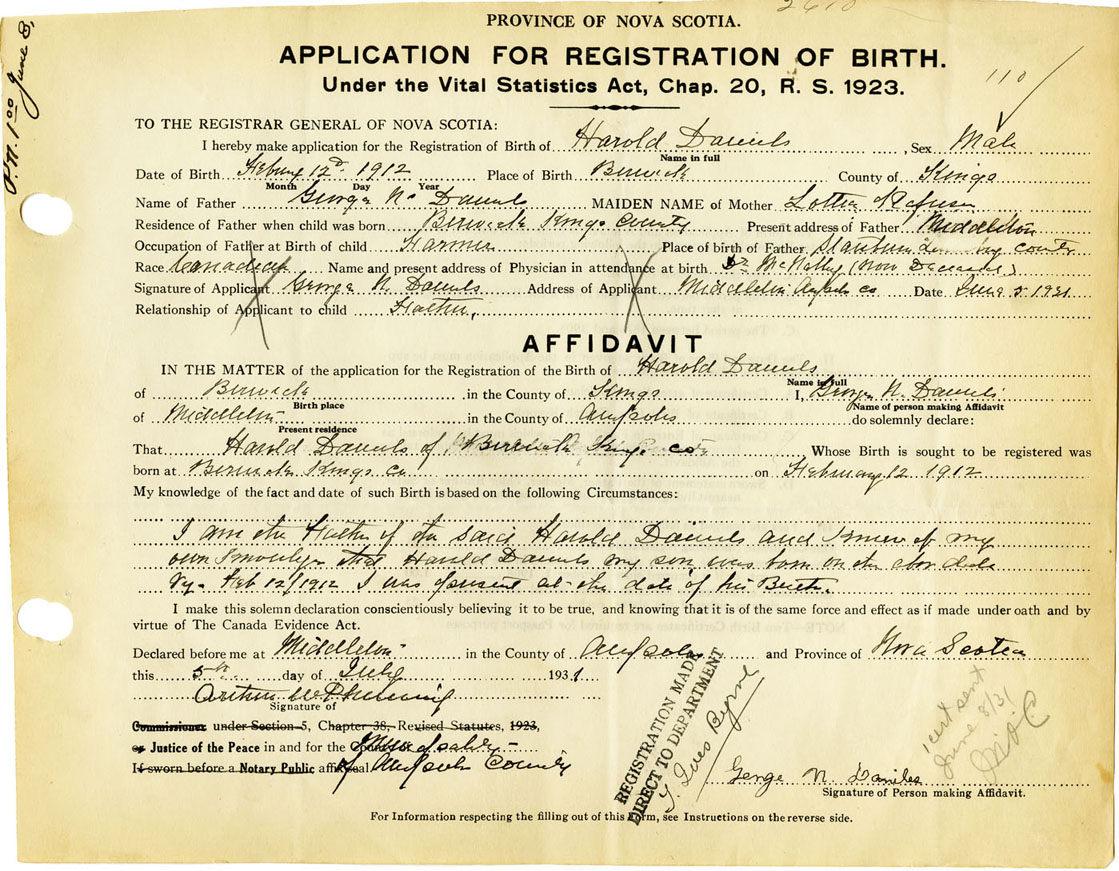 P.N. 1.00 June 8,
PROVINCE OF NOVA SCOTIA.
APPLICATION FOR REGISTRATION OF BIRTH.
110
Under the Vital Statistics Act, Chap. 20, R. S. 1923.
TO THE REGISTRAR GENERAL OF NOVA SCOTIA:
I hereby make application for the Registration of Birth of Harold Daniels, Sex Male
Name in full
Date of Birth 12 1912 Place of Birth Berwick County of Kings
Month Day Year
Name of Father George N. Daniels MAIDEN NAME of Mother Lottie
Residence of Father when child was born Berwick Kings County Present address of Father Middleton
Occupation of Father at Birth of child Farmer Place of birth of Father County
Race Canadian Name and present address of Physician in attendance at birth Dr McNally (Now Deceased)
Signature of Applicant George N. Daniels Address of Applicant Middleton Co Date 5 1931
Relationship of Applicant to child Father,
AFFIDAVIT
IN THE MATTER of the application for the Registration of the Birth of Harold Daniels
Name in full
of Berwick in the County of Kings I, George N. Daniels
Birth place
Name of person making Affidavit
of Middleton in the County of Annapolis do solemnly declare:
Present residence
That Harold Daniels of Berwick Kings Co Whose Birth is sought to be registered was
born at Berwick Kings Co on February 12 1912
My knowledge of the fact and date of such Birth is based on the following Circumstances:
I am the Father of the said Harold Daniels and Know of my
own Knowledge that Harold Daniels my son was born on the date
Feb 12/1912 I was present at the date of his Birth.
I make this solemn declaration conscientiously believing it to be true, and knowing that it is of the same force and effect as if made under oath and by
virtue of The Canada Evidence Act.
Declared before me at Middleton in the County of Annapolis and Province of Nova Scotia
this 5th day of 1931
Arthur
Signature of
Commissioner under Section 5, Chapter 38, Revised Statutes, 1923,
or Justice of the Peace in and for the
If sworn before a Notary Public affix seal of County
REGISTRATION MADE
DIRECT TO DEPARTMENT
Byrne
1 cert sent
June 8/31
George N. Daniles
Signature of Person making Affidavit.
For Information respecting the filling out of this Form, see Instructions on the reverse side.